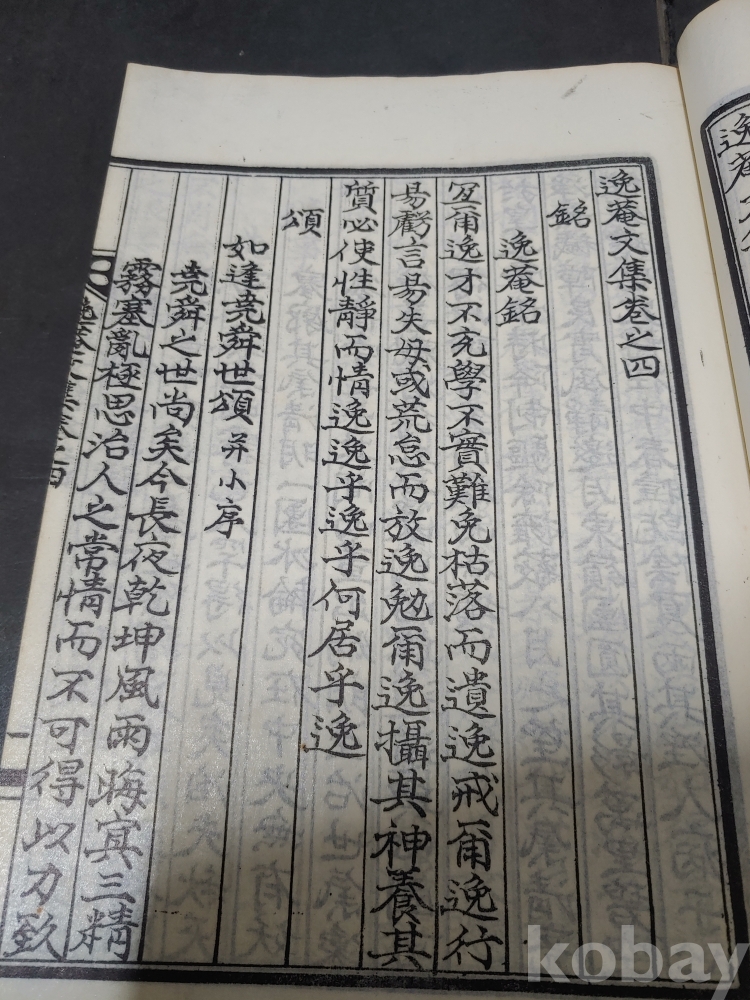 逸菴文集卷之四
銘
逸菴銘
爾逸才不充學不實難免枯落而遺逸戒爾逸行
易虧言易失毋或荒怠而放逸勉爾逸攝其神養其
質必使性靜而情逸逸乎逸乎何居乎逸
頌
如逢堯舜世頌 并小序
堯舜之世尚矣今長夜乾坤風雨晦冥三精
霧塞亂極思治人之常情而不可得以力致
逸菴文集卷之四
一
逸菴文集
kobay